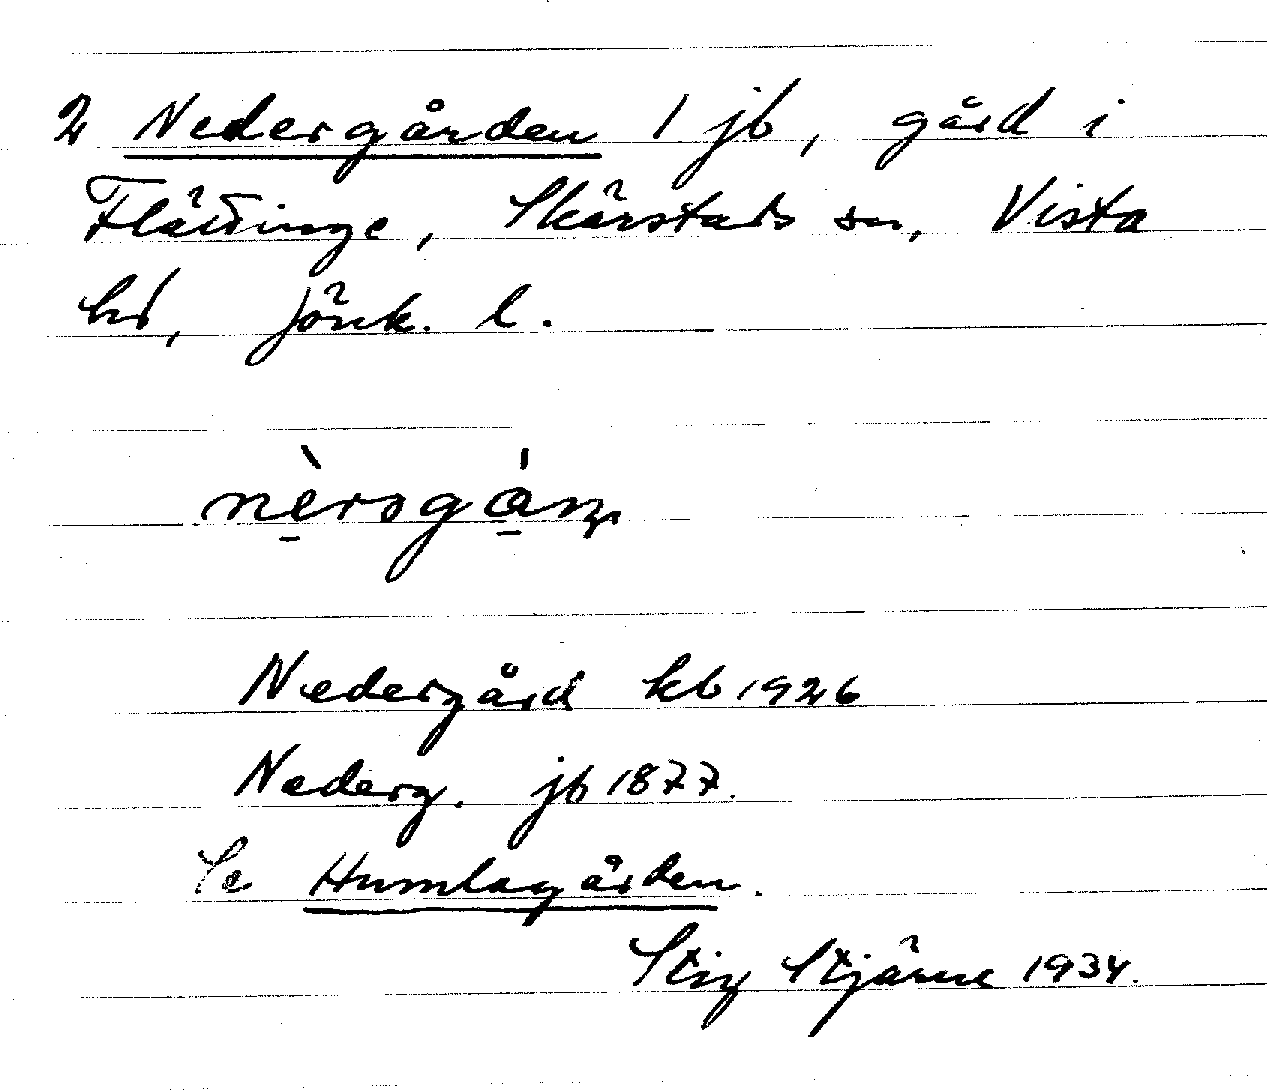 2 Nedergården 1 jb, gård i
Flättinge, Skärstads sn, Vista
hd, Jönk. l.
nèrogán
Nedergård kb 1926
Nederg. jb 1877.
Se Humlagården.
Stig Stjärne 1934.